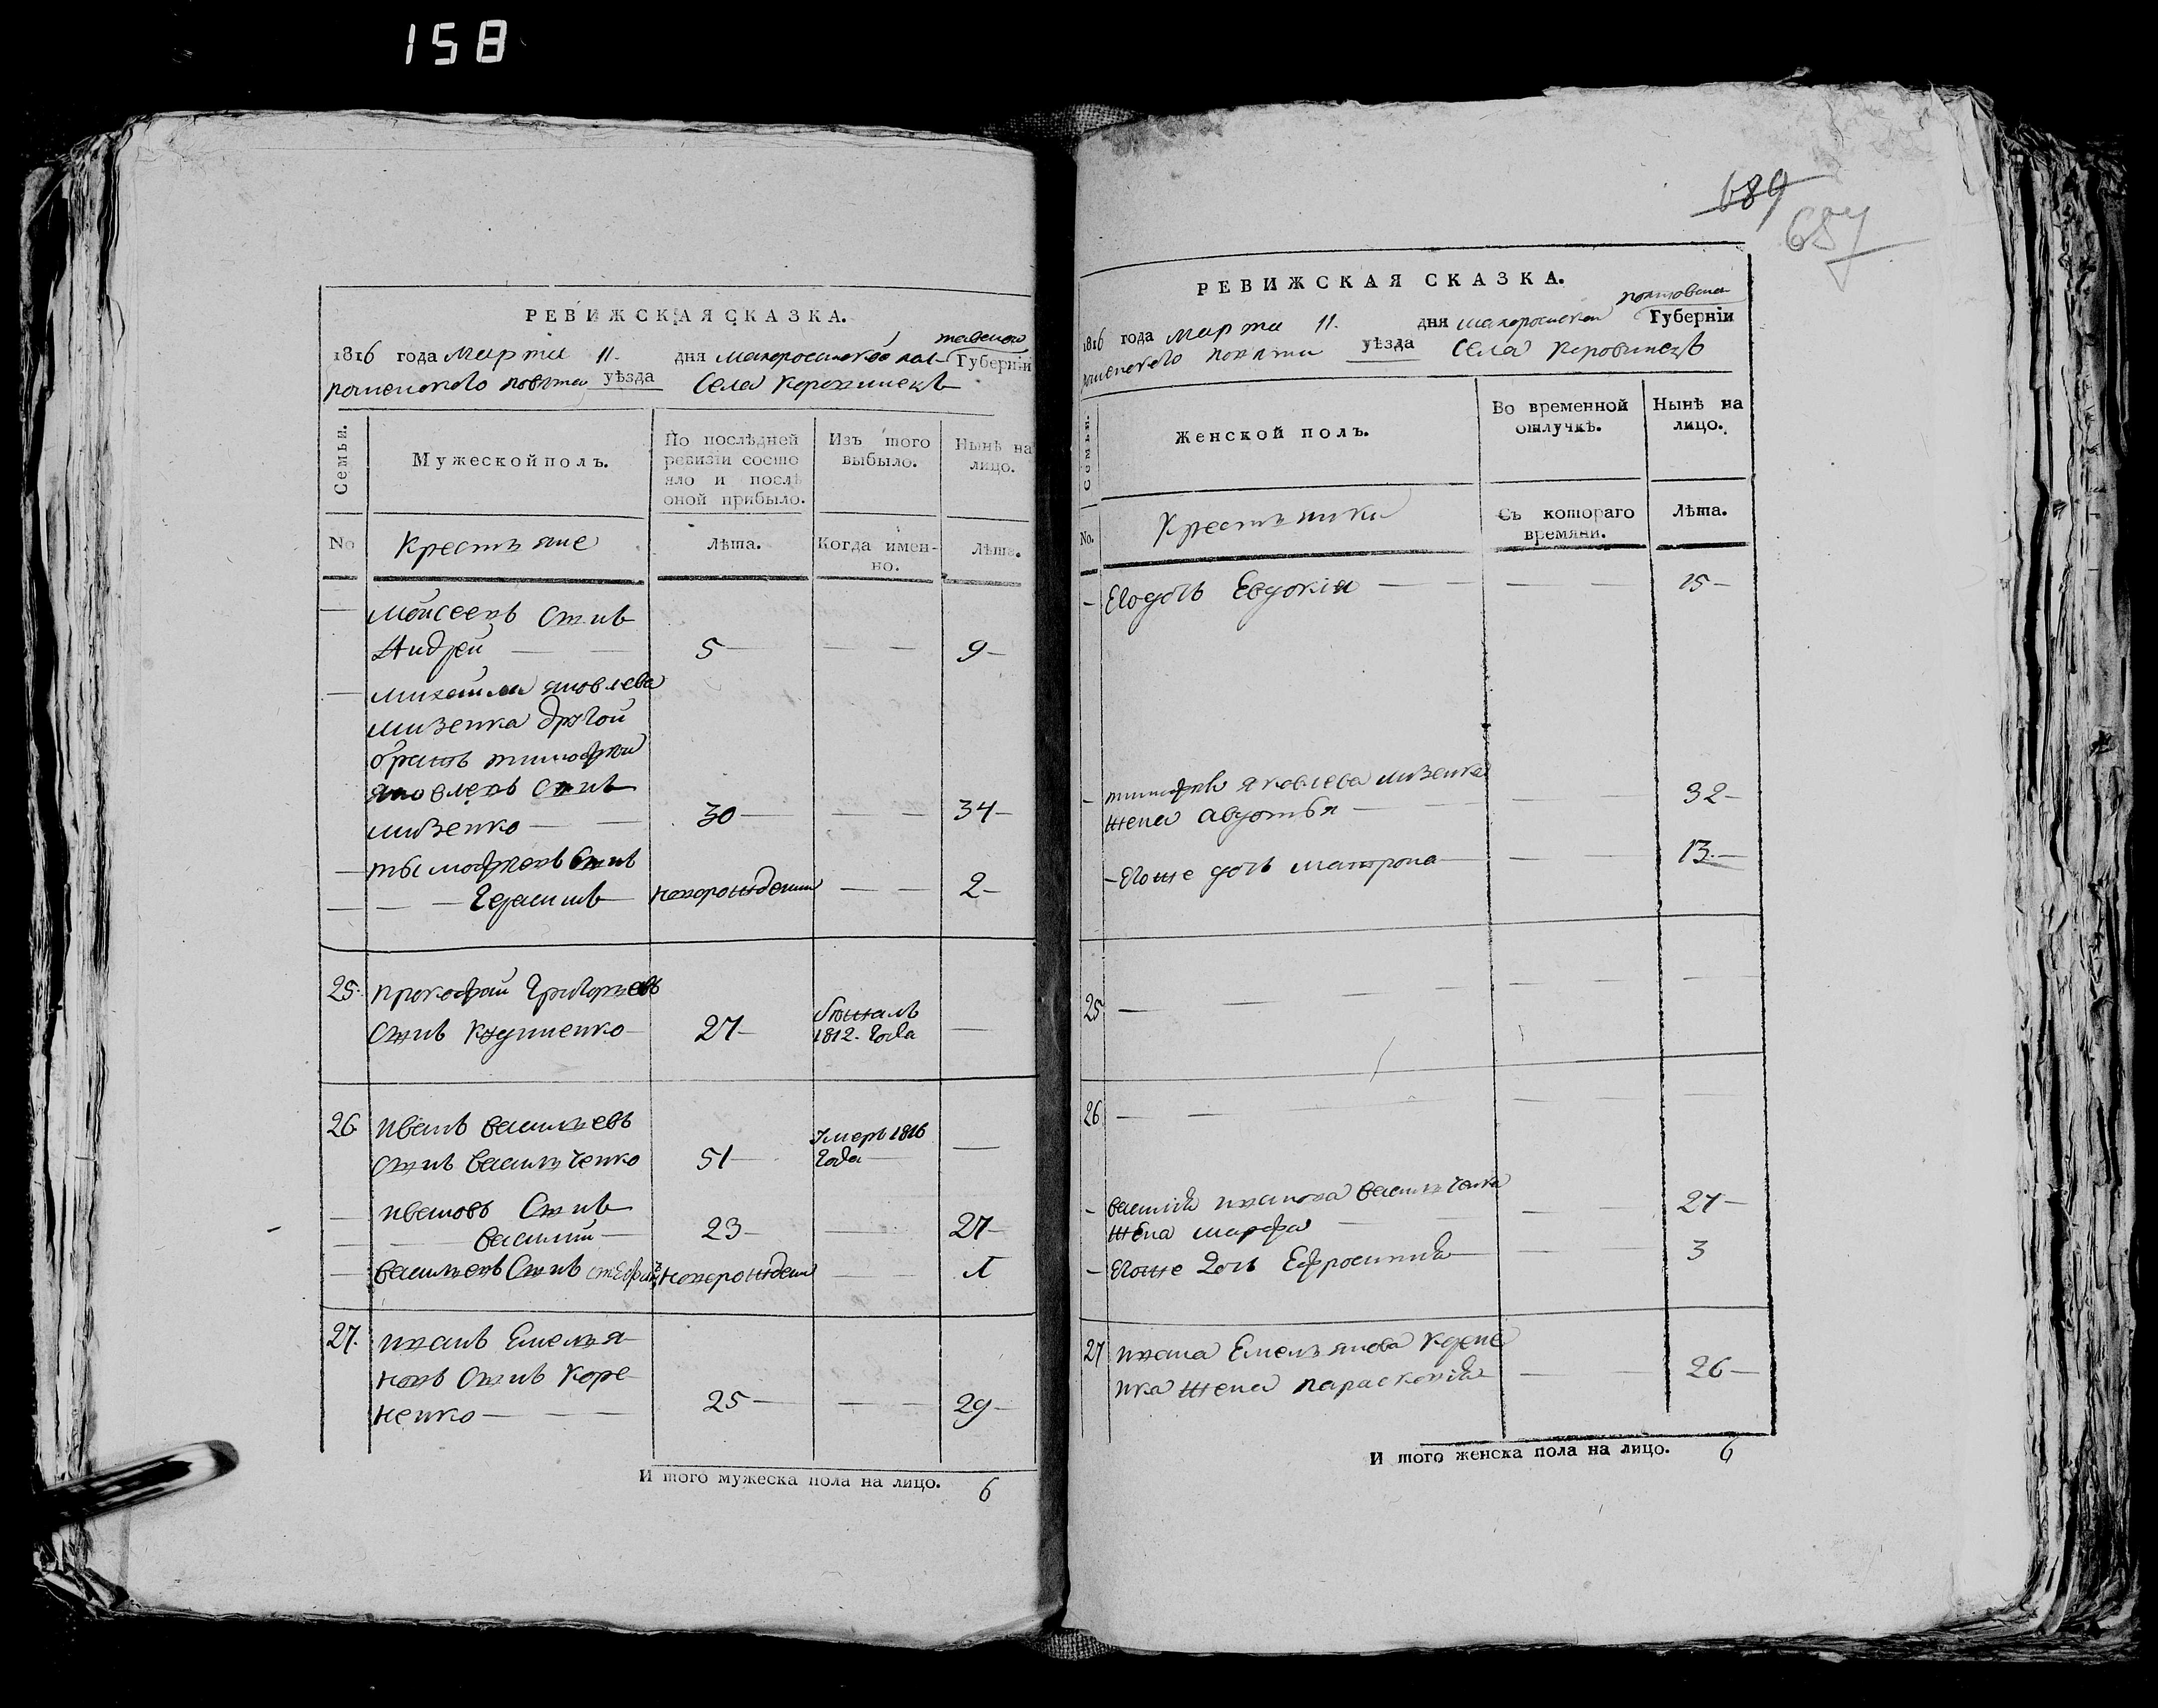 158
РЕВИЖСКАЯ СКАЗКА.
1816 года марта 11. дня малоросийской пол-
тавской Губерніи
роменского повѣта уѣзда Села Коровинецъ
Семьи.
Мужеской полъ.
По послѣдней
ревизіи состо
яло и послѣ
оной прибыло.
Изъ того
выбыло.
Нынѣ на
лицо.
No
Крестьяне
Лѣта.
Когда имен-
но.
Лѣта.
— Моисеевъ Сынъ
Андрей — — 5 — — — 9 —
— Михаила яковлева
мизенка другой
братъ тимофей
яковлевъ Сынъ
мизенко — — 30 — — — 34 —
— тымофеевъ Сынъ
— — — Герасимъ — новорожденый — — 2 —
25. Прокофий Григорьевъ
Сынъ Кущенко — 27 — бежалъ
1812. Года —
26 Иванъ васильевъ
Сынъ васильченко 51 — Умеръ 1816
Года —
— Ивановъ Сынъ
— — василий — 23 — — 27 —
— васильевъ Сынъ новорожден — — 1
27. Иванъ Емелья-
новъ Сынъ Коре-
ненко — — — 25 — — — 29 —
И того мужеска пола на лицо. 6
689
657
РЕВИЖСКАЯ СКАЗКА.
1816 года марта 11. дня малоросийской полтавской Губерніи
роменского повѣта уѣзда Села Коровинецъ
Семьи.
Женской полъ.
Во временной
отлучкѣ.
Нынѣ на
лицо.
No.
Крестьянки
Съ котораго
времяни.
Лѣта.
— Его дочь Евдокія — — — — 15 —
— тимофея яковлева мизенка
жена авдотья — — — 32 —
— Его же дочь матрона — — — 13. —
25 — — — — — — —
26 — — — — — — —
— василія иванова васильченка
жена марфа — — — 27 —
— Его же дочь Ефросинія — — — 3
27 Ивана Емельянова Корене
нка жена параскевія — — — 26 —
И того женска пола на лицо. 6